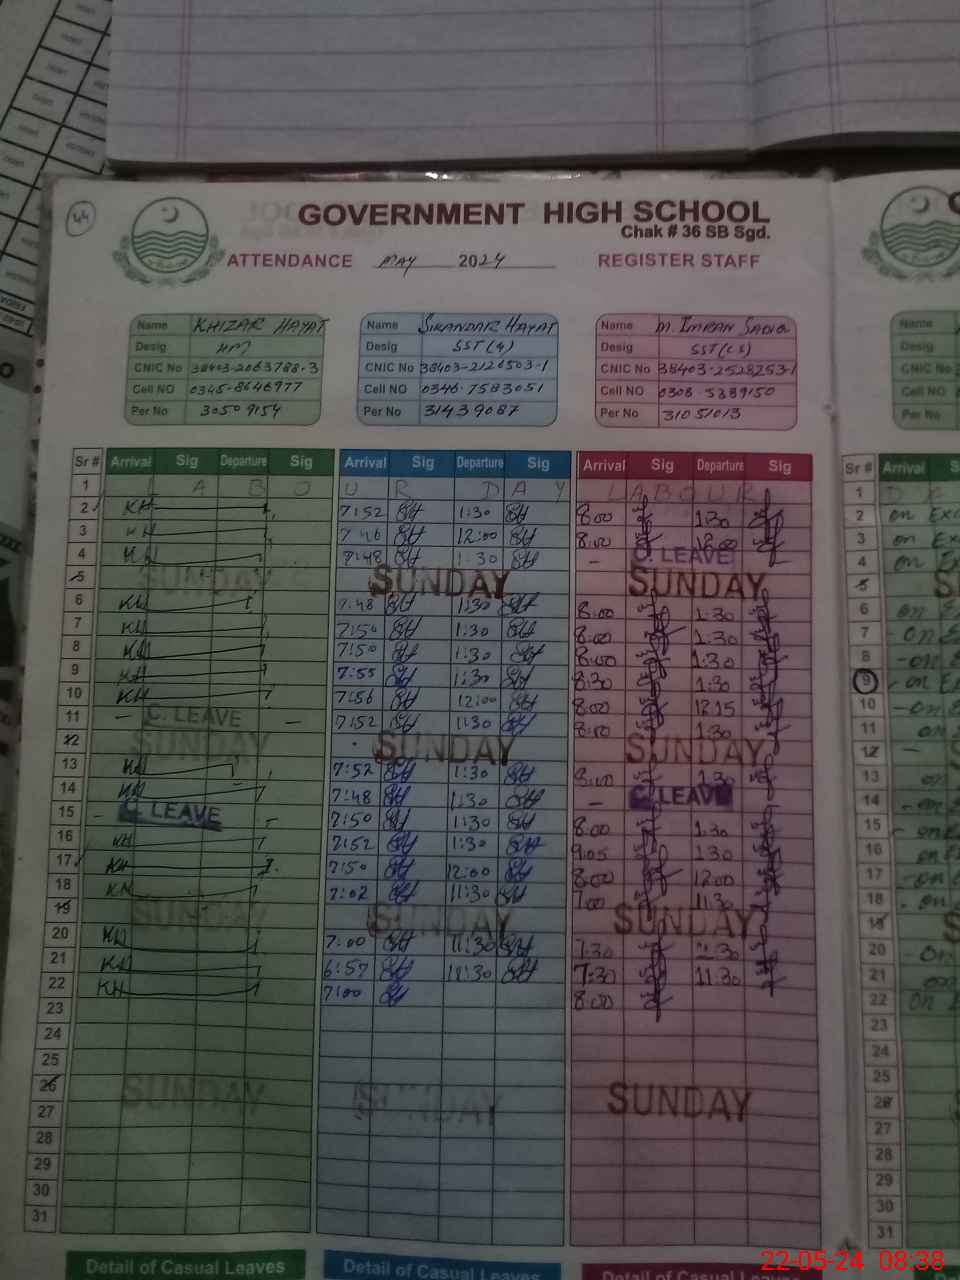 44
GOVERNMENT HIGH SCHOOL
Chak # 36 SB Sgd.
ATTENDANCE MAY 2024 REGISTER STAFF
Name KHIZAR HAYAT Name SIKANDAR HAYAT Name M. IMRAN SADIQ
Desig HM Desig SST(G) Desig SST(CS)
CNIC No 38403-2063788-3 CNIC No 38403-2126503-1 CNIC No 38403-2528253-1
Cell NO 0345-8646977 Cell NO 0346-7583051 Cell NO 0308-5389150
Per No 30509154 Per No 31439087 Per No 31051013
Sr # Arrival Sig Departure Sig Arrival Sig Departure Sig Arrival Sig Departure Sig Sr # Arrival
1 L A B O U R D A Y LABOUR 1 D
2 KH 7:52 1:30 8:00 1:30 2 on
3 KH 12:00 8:00 3 on
4 KH 7:48 1:30 - C. LEAVE 4 on
5 SUNDAY SUNDAY SUNDAY 5
6 KH 7:48 1:30 8:00 1:30 6 on
7 KH 7:50 1:30 8:00 1:30 7 -on
8 KH 7:50 1:30 8:00 1:30 8 -on
9 KH 7:55 1:30 8:30 1:30 9 -on
10 KH 7:56 12:00 8:00 12:15 10 -on
11 - C. LEAVE - 7:52 11:30 8:00 1:30 11 on
12 SUNDAY SUNDAY SUNDAY 12 -
13 KH 7:52 1:30 8:00 1:30 13 on
14 KH 7:48 1:30 - C. LEAVE 14 -on
15 - C. LEAVE - 7:50 11:30 8:00 1:30 15
16 KH 7:52 1:30 9:05 1:30 16 on
17 KH 7:50 12:00 8:00 12:00 17 -on
18 KH 7:02 11:30 7:00 11:30 18 on
19 SUNDAY SUNDAY SUNDAY 19
20 KH 7:00 11:30 7:30 11:30 20 -on
21 KH 6:57 11:30 7:30 11:30 21 on
22 KH 7:00 8:00 22 on
23 23
24 24
25 25
26 SUNDAY SUNDAY SUNDAY 26
27 27
28 28
29 29
30 30
31 31
Detail of Casual Leaves Detail of Casual Leaves Detail of Casual Leaves
22-05-24 08:38